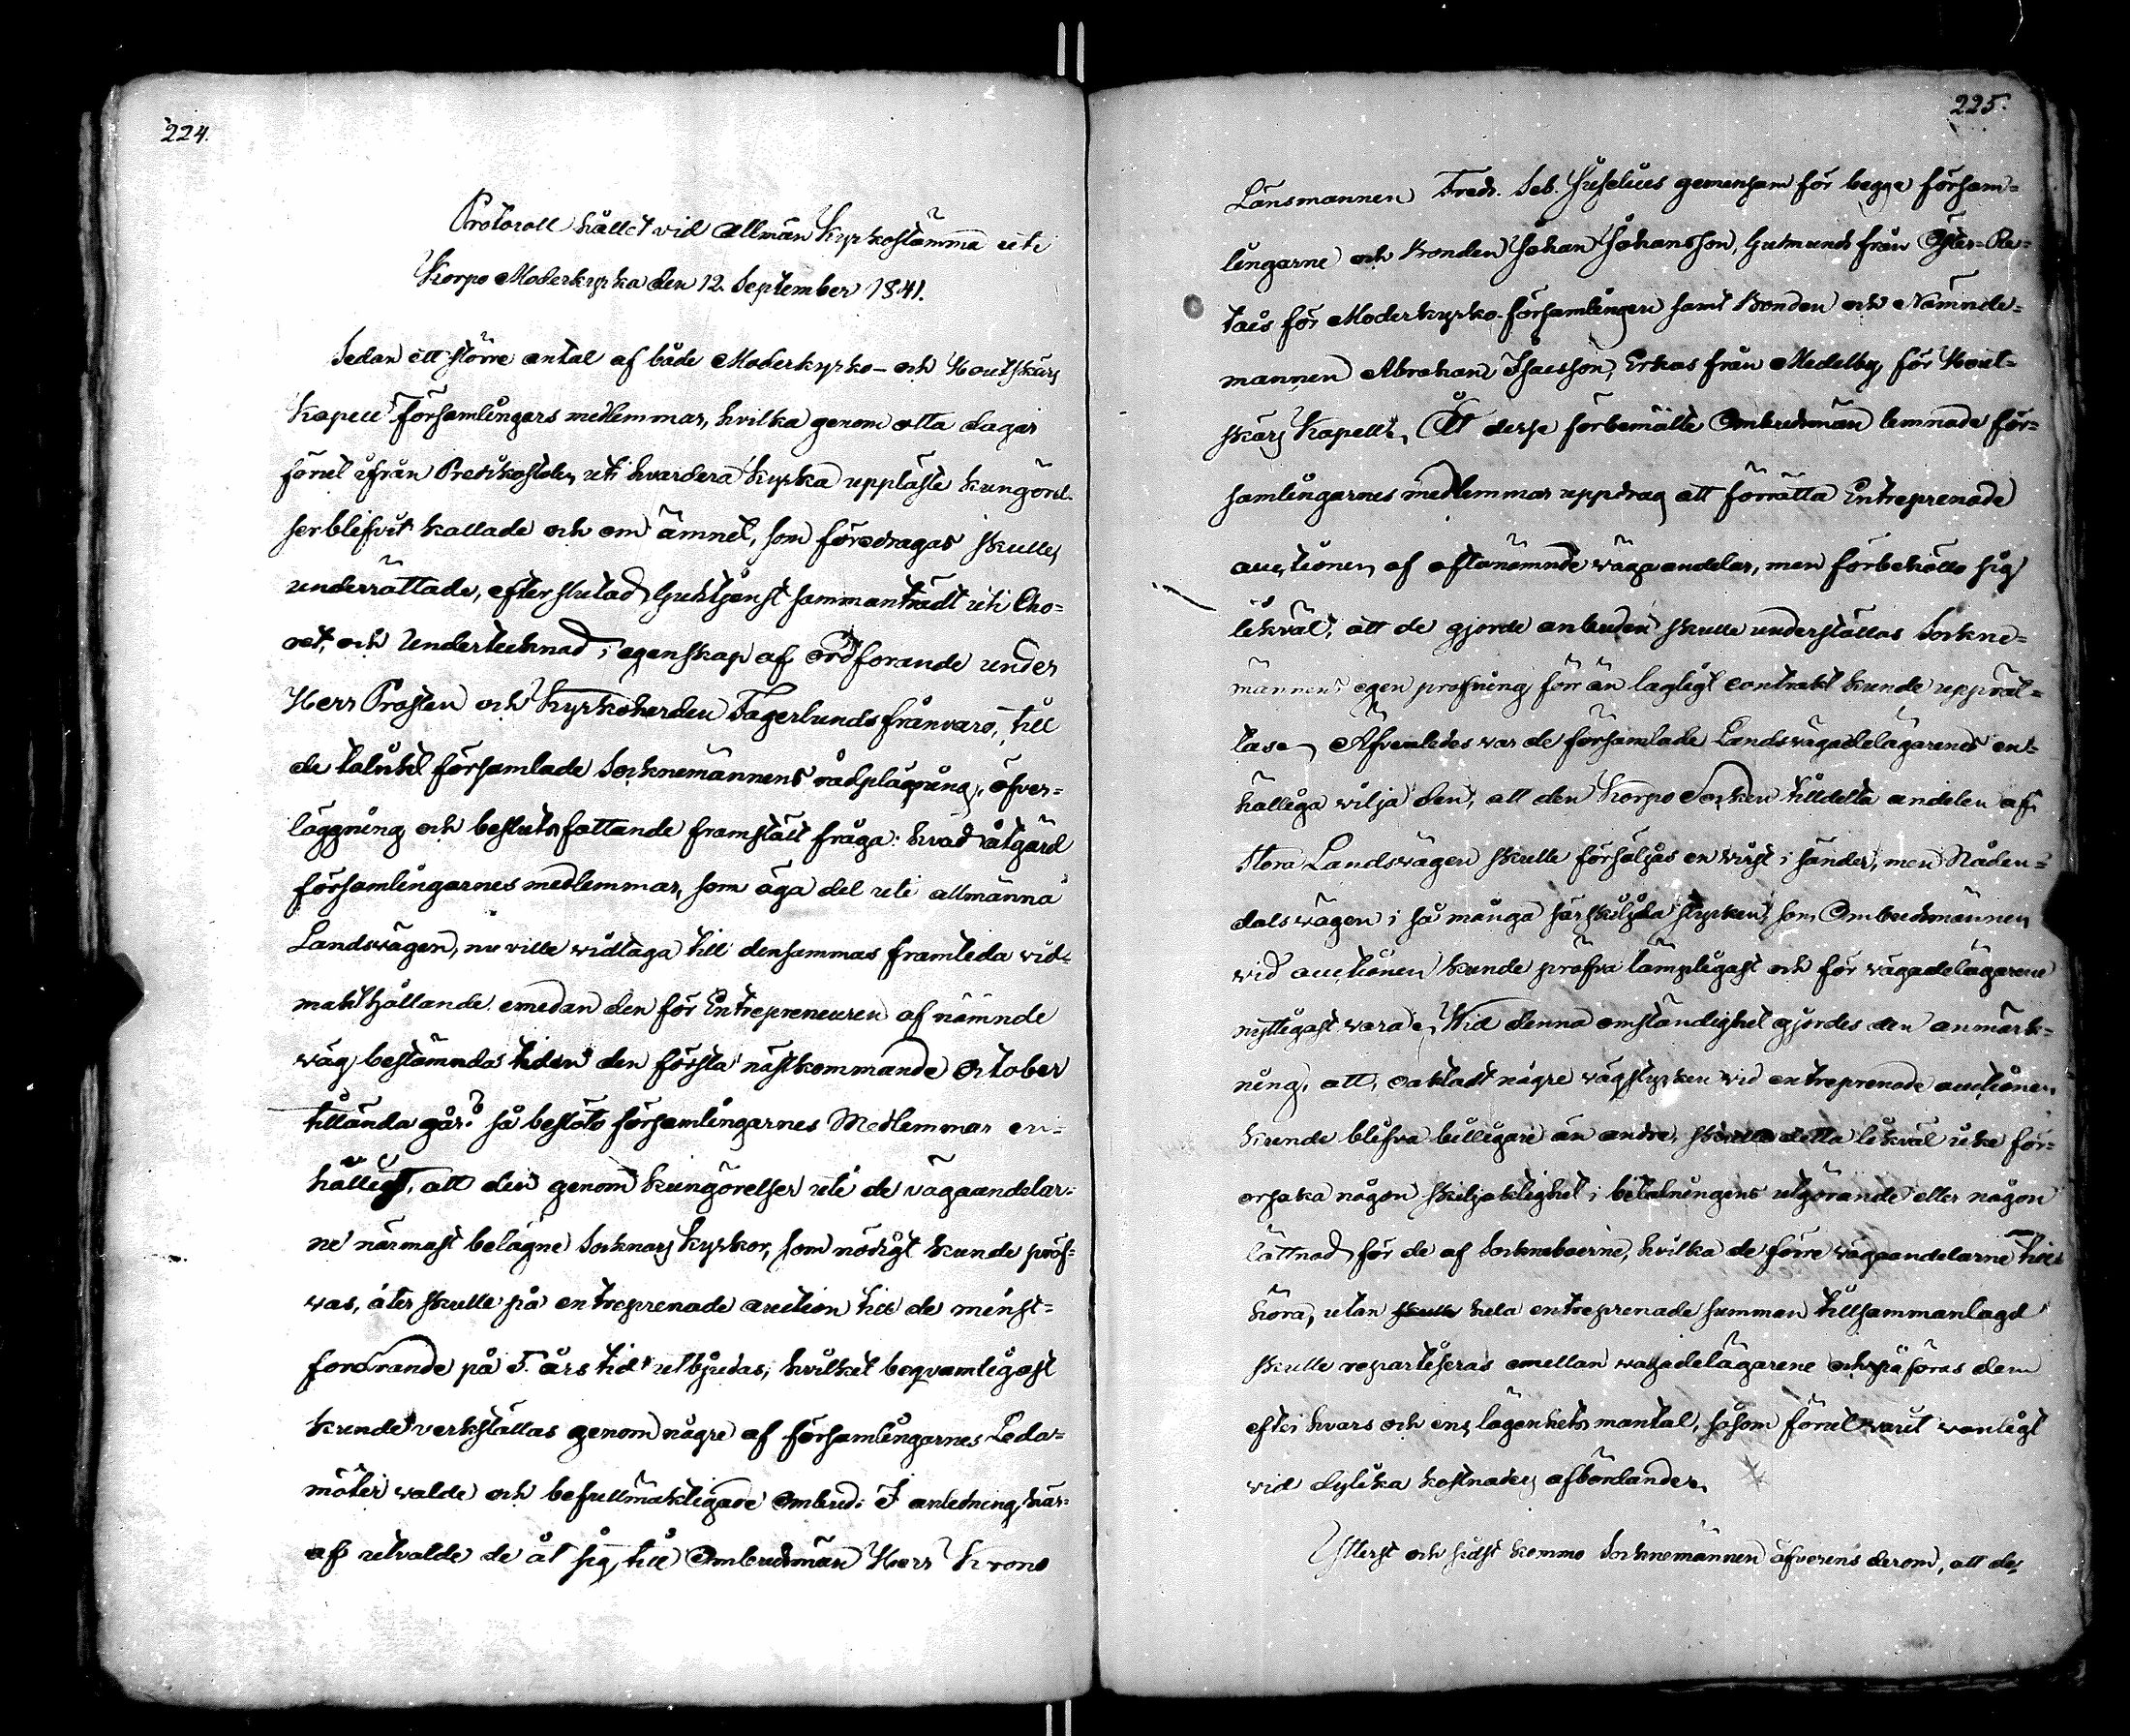 224.
Protocoll hållet vid allmän Kyrkostämma uti
Korpo Moderkyrka den 12. September 1841.
Sedan ett större antal af både Moderkyrko- och Houtskärs
Kapell Församlingars medlemmar, hvilka genom åtta dagar
förut ifrån Predikostolen uti hvardera Kyrka uppläste kungörel-
ser blifvit kallade och om ämnet, som föredragas skulle,
underrättade, efter slutad Gudstjenst sammanträdt uti Cho-
ret, och Undertecknad i egenskap af ordförande under
Herr Prosten och Kyrkoherden Fagerlunds frånvaro, till
de talrikt församlade Socknemännens rådplägning, öfver-
läggning och besluts fattande framstält fråga: hvad åtgärd
församlingarnes medlemmar, som äga del uti allmänna
Landsvägen, nu ville widtaga till densammas framtida vid-
makthållande emedan den för Entrepreneuren af nämnde
wäg bestämnda tiden den första nästkommande October
tilländagår? så beslöto församlingarnes Medlemmar en-
hälligt, att den genom kungörelser uti de vägaandelar-
ne närmast belägne Socknars Kyrkor, som nödigt kunde pröf-
was, åter skulle på entreprenade auction till de minst-
fordrande på 5. års tid utbjudas, hvilket beqvämligast
kunde verkställas genom någre af församlingarnes Leda-
möter walde och befullmäktigade Ombud. I anledning här-
af utvalde de åt sig till Ombudsmän Herr Krono
225.
Länsmannen Fredr. Seb. Juselius gemensam för begge försam-
lingarne och Bonden Johan Johansson, Gutmunds från Öster-Re-
tais för Moderkyrko-församlingen samt Bonden och Nämnde-
mannen Abraham Isacsson, Erkas från Medelby för Hout-
skärs Kapell. Åt desse förbemälte Ombudsmän lemnade för-
samlingarnes medlemmar uppdrag att förrätta Entreprenade
auctionen af oftanämnde wägaandelar, men förbehöllo sig
likväl, att de gjorde anbuden skulle underställas Sockne-
männens egen profning förrän lagligt contrakt kunde upprät-
tas. Äfvenledes war de församlade Landsvägadelägarenes en-
hälliga wilja den, att den Korpo Socken tilldelta andelen af
stora Landswägen skulle försäljas en virst i sänder, men Nåden-
dalswägen i så många särskiljda stycken, som Ombudsmännen
vid auctionen kunde pröfva lämpligast och för wägadelägarene
nyttigast wara. Wid denna omständighet gjordes den anmärk-
ning, att, oaktadt någre wägstycken vid entreprenade auctionen
kunde blifva billigare än andre, skulle detta likväl icke för-
orsaka någon skiljaktighet i betalningens utgörande eller någon
lättnad för de af Sockneboerne, hvilka de förre wägaandelarne till-
höra, utan hela entreprenade summan tillsammanlagd
skulle repartiseras emellan wägadelägarene och påföras dem
efter hvars och ens lägenhets mantal, såsom förut warit wanligt
vid dylika kostnaders afbördande.
Ytterst och sidst kommo Socknemännen äfverens derom, att de